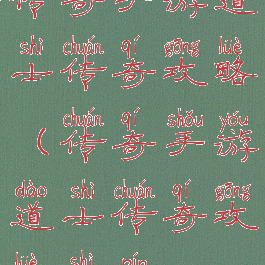 传奇手游道
shì chuán qí gōng lüè
士传奇攻略
chuán qí shǒu yóu
（传奇手游
dào shì chuán qí gōng
道士传奇攻
lüè shì pín